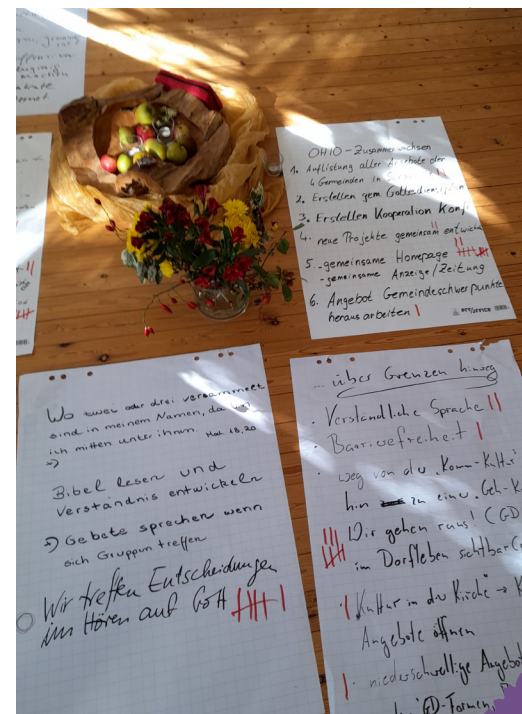 OHIO - Zusammenwachsen
1. Auflistung aller Angebote der
4 Gemeinden in
2. Erstellen gem Gottesdienstplan
3. Erstellen Kooperation Konf
4. neue Projekte gemeinsam entwick
5. - gemeinsame Homepage
- gemeinsame Anzeige/Zeitung
6. Angebot Gemeindeschwerpunkte
herausarbeiten
Wo zwei oder drei versammelt
sind in meinem Namen, da
ich mitten unter ihnen. Mat 18,20
=)
Bibel lesen und
Verständnis entwickeln
=) Gebete sprechen wenn
sich Gruppen treffen
Wir treffen Entscheidungen
im Hören auf Gott
... über Grenzen hinweg
· Verständliche Sprache
· Barrierefreiheit
· weg von der "Komm-Kultur
hin zu einer "Geh-K
Wir gehen raus! (GD
im Dorfleben sichtbar
· Kultur in der Kirche → K
Angebote öffnen
· niederschwellige Angebot
GD-Formen,